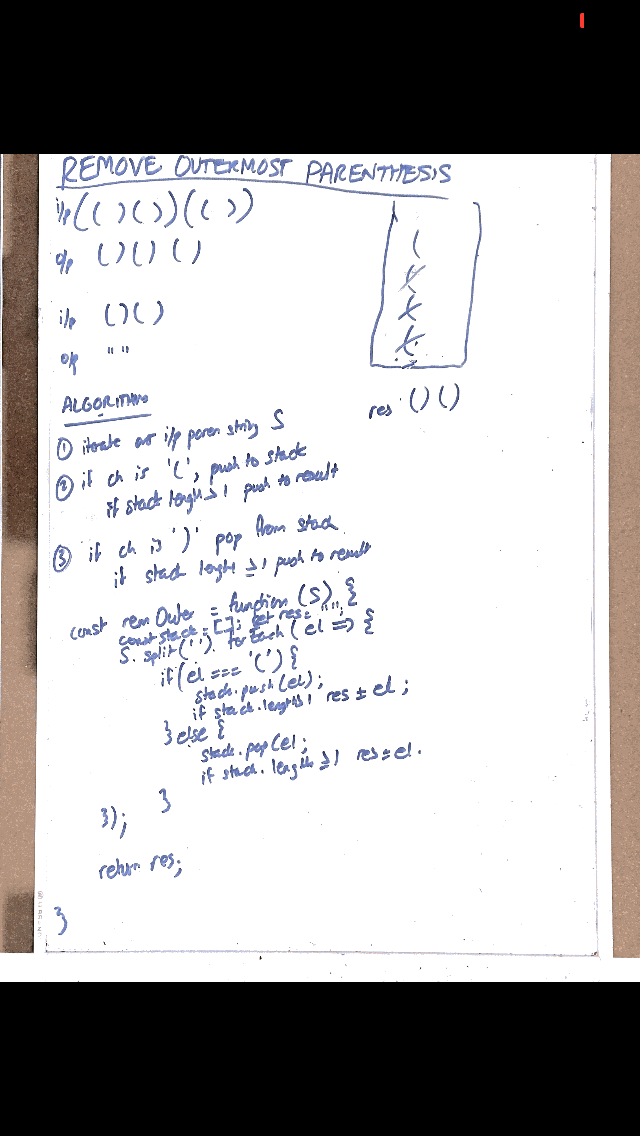 REMOVE OUTERMOST PARENTHESIS
i/p (()())(())
o/p ()()()
i/p ()()
o/p " "
(
(
(
(
res ()()
ALGORITHM
① iterate over i/p paren string S
② if ch is '(', push to stack
if stack length > 1 push to result
③ if ch is ')' pop from stack
if stack length ≥ 1 push to result
const remOuter = function (S) {
const stack = []; let res = "";
S. split(''). forEach( el => {
if (el === '(') {
stack.push(el);
if stack.length>1 res ± el;
} else {
stack.pop(el;
if stack.length ≥ 1 res ± el.
}
});
return res;
}